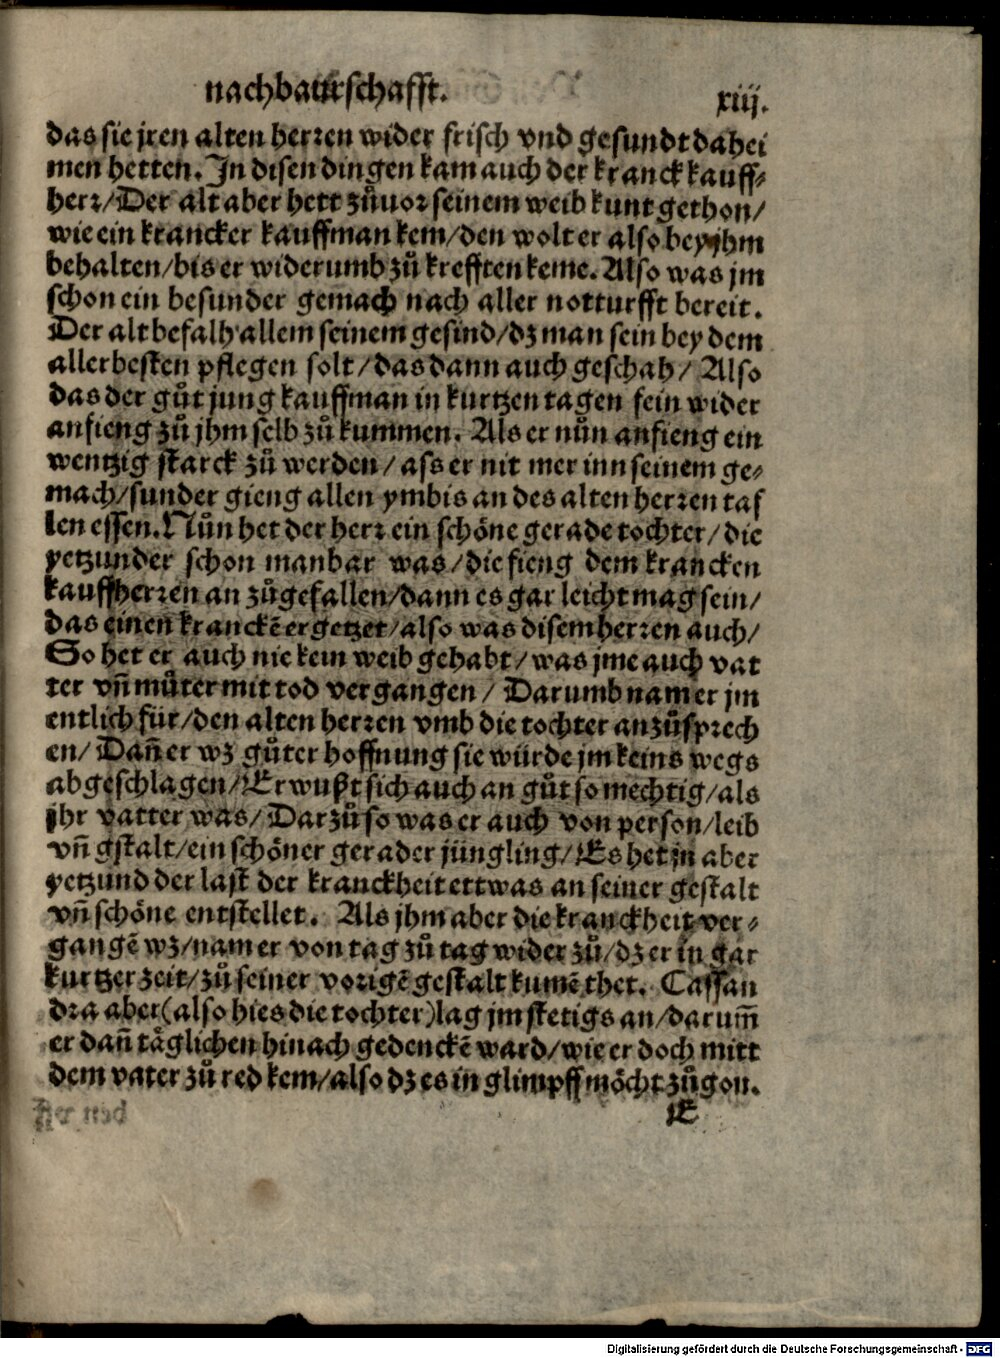 nachbaurschafft.
xiij.
das sie jren alten herren wider frisch vnd gesundt dahei
men hetten. In disen dingen kam auch der kranck kauff⸗
herr/Der alt aber hett zůuor seinem weib kunt gethon/
wie ein krancker kauffman kem/den wolt er also bey jhm
behalten/bis er widerumb zů krefften keme. Also was jm
schon ein besunder gemach nach aller notturfft bereit.
Der alt befalh allem seinem gesind/dz man sein bey dem
allerbesten pflegen solt/das dann auch geschah/ Also
das der gůt jung kauffman in kurtzen tagen fein wider
anfieng zů jhm selb zů kummen. Als er nůn anfieng ein
wentzig starck zů werden/ ass er nit mer inn seinem ge⸗
mach/sunder gieng allen ymbis an des alten herren taf
len essen. Nůn het der herr ein schöne gerade tochter/die
yetzunder schon manbar was/die fieng dem krancken
kauffherren an zůgefallen/dann es gar leicht mag sein/
das einen kranckē ergetzet/also was disem herren auch/
So het er auch nie kein weib gehabt/was jme auch vat
ter vn̄ můter mit tod vergangen/ Darumb nam er jm
entlich für/den alten herren vmb die tochter anzůsprech
en/ Dan̄ er wz gůter hoffnung sie würde jm keins wegs
abgeschlagen/Er wußt sich auch an gůt so mechtig/als
jhr vatter was/ Darzů so was er auch von person/leib
vn̄ gstalt/ein schöner gerader jüngling/Es het jn aber
yetzund der last der kranckheit ettwas an seiner gestalt
vn̄ schöne entstellet. Als jhm aber die kranckheit ver⸗
gangē wz/nam er von tag zů tag wider zů/dz er in gar
kurtzer zeit/zů seiner vorigē gestalt kumē thet. Cassan
dra aber(also hies die tochter)lag jm stetigs an/darum̄
er dan̄ täglichen hinach gedenckē ward/wie er doch mitt
dem vater zů red kem/also dz es in glimpff möcht zůgon.
E
Digitalisierung gefördert durch die Deutsche Forschungsgemeinschaft - DFG